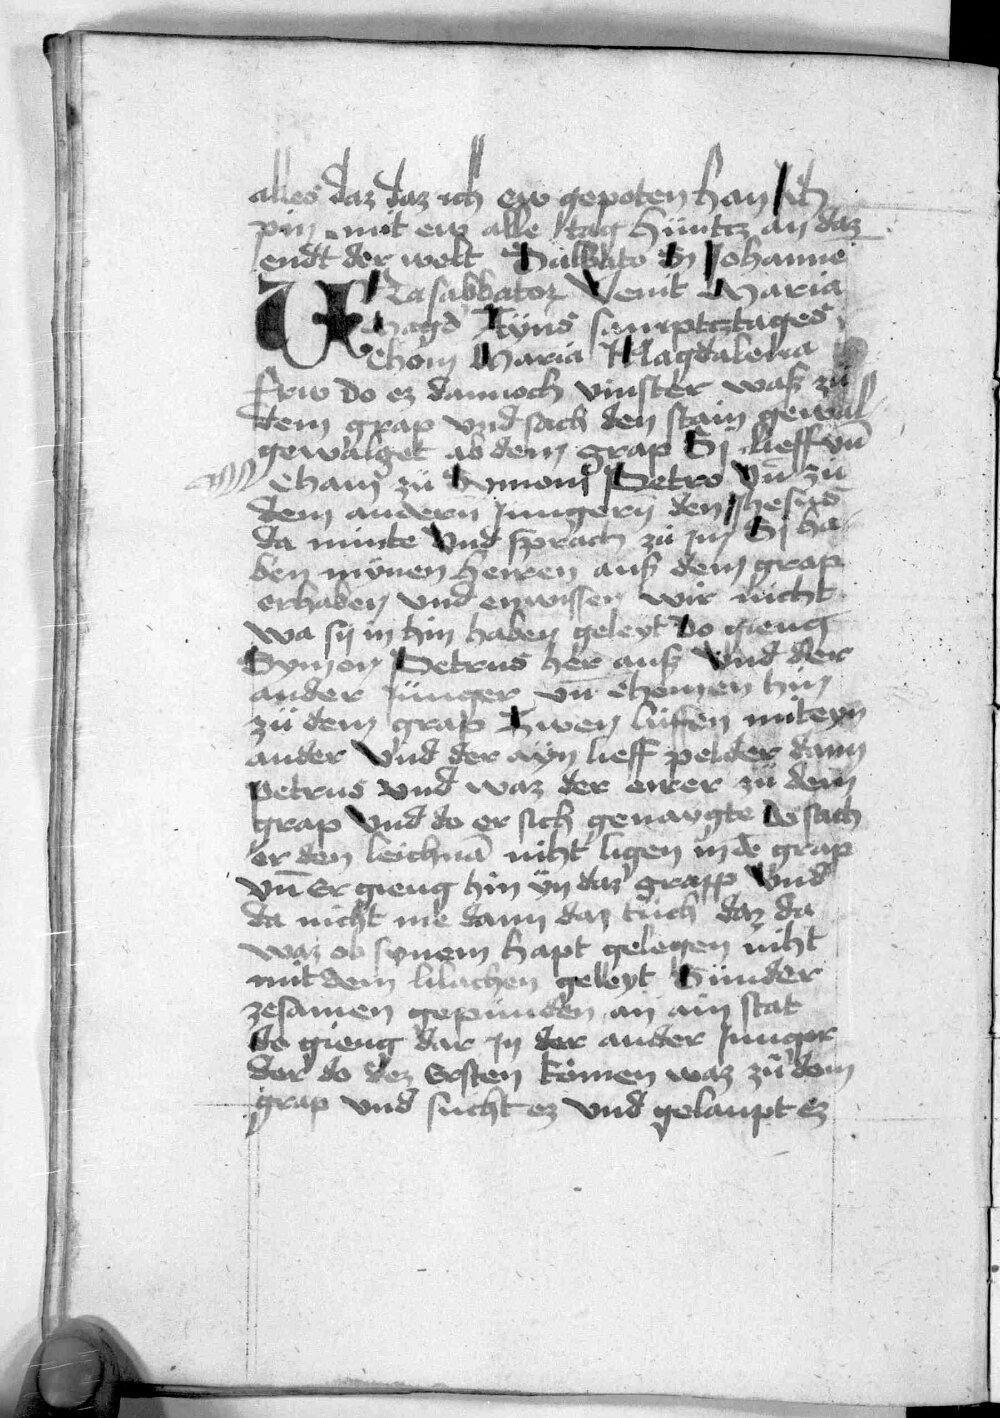 alles daz daz ich ew gepoten han Ich
pin mit ew alle tag hüntz an daz
endt der welt Sabbato S Johanne
Una sabbatorum Venit Maria
Magd Ayns samptztages
Chom Maria Magdalena
frw do ez dannoch vinster waß zü
dem grap vnd sach den stain gewal
gewalget ab dem grap Si lieff vnd
Cham zü Symoni Petro Vn zu
dem andern Jungern den Jhesus
da minte Vnd sprach zü jn Si ha
ben mynen herren auß dem grap
erhaben vnd enwissen wir nicht
wa sy in hin haben geleyt Do gieng
Symon Petrus her auß Vnd der
ander Jünger vn Chomen hin
zü dem grap Zwen lüffen miteyn
ander Vnd der ayn lieff pelder dann
Petrus vnd waz der errer zü dem
grap Vnd do er sich genaygte Do sach
er den leichnā niht ligen in de grap
vn̄ Er gieng hin yn daz grapp Vnd
da nicht me dann daz tüch daz da
waz ob synem hapt gelegen niht
mit dem lilachen geleyt Sünder
zesamen gepunden an ain stat
do gieng dar jn der ander Junger
der do dez Ersten komen waz zü dem
grap vnd sucht ez vnd gelaupt ez